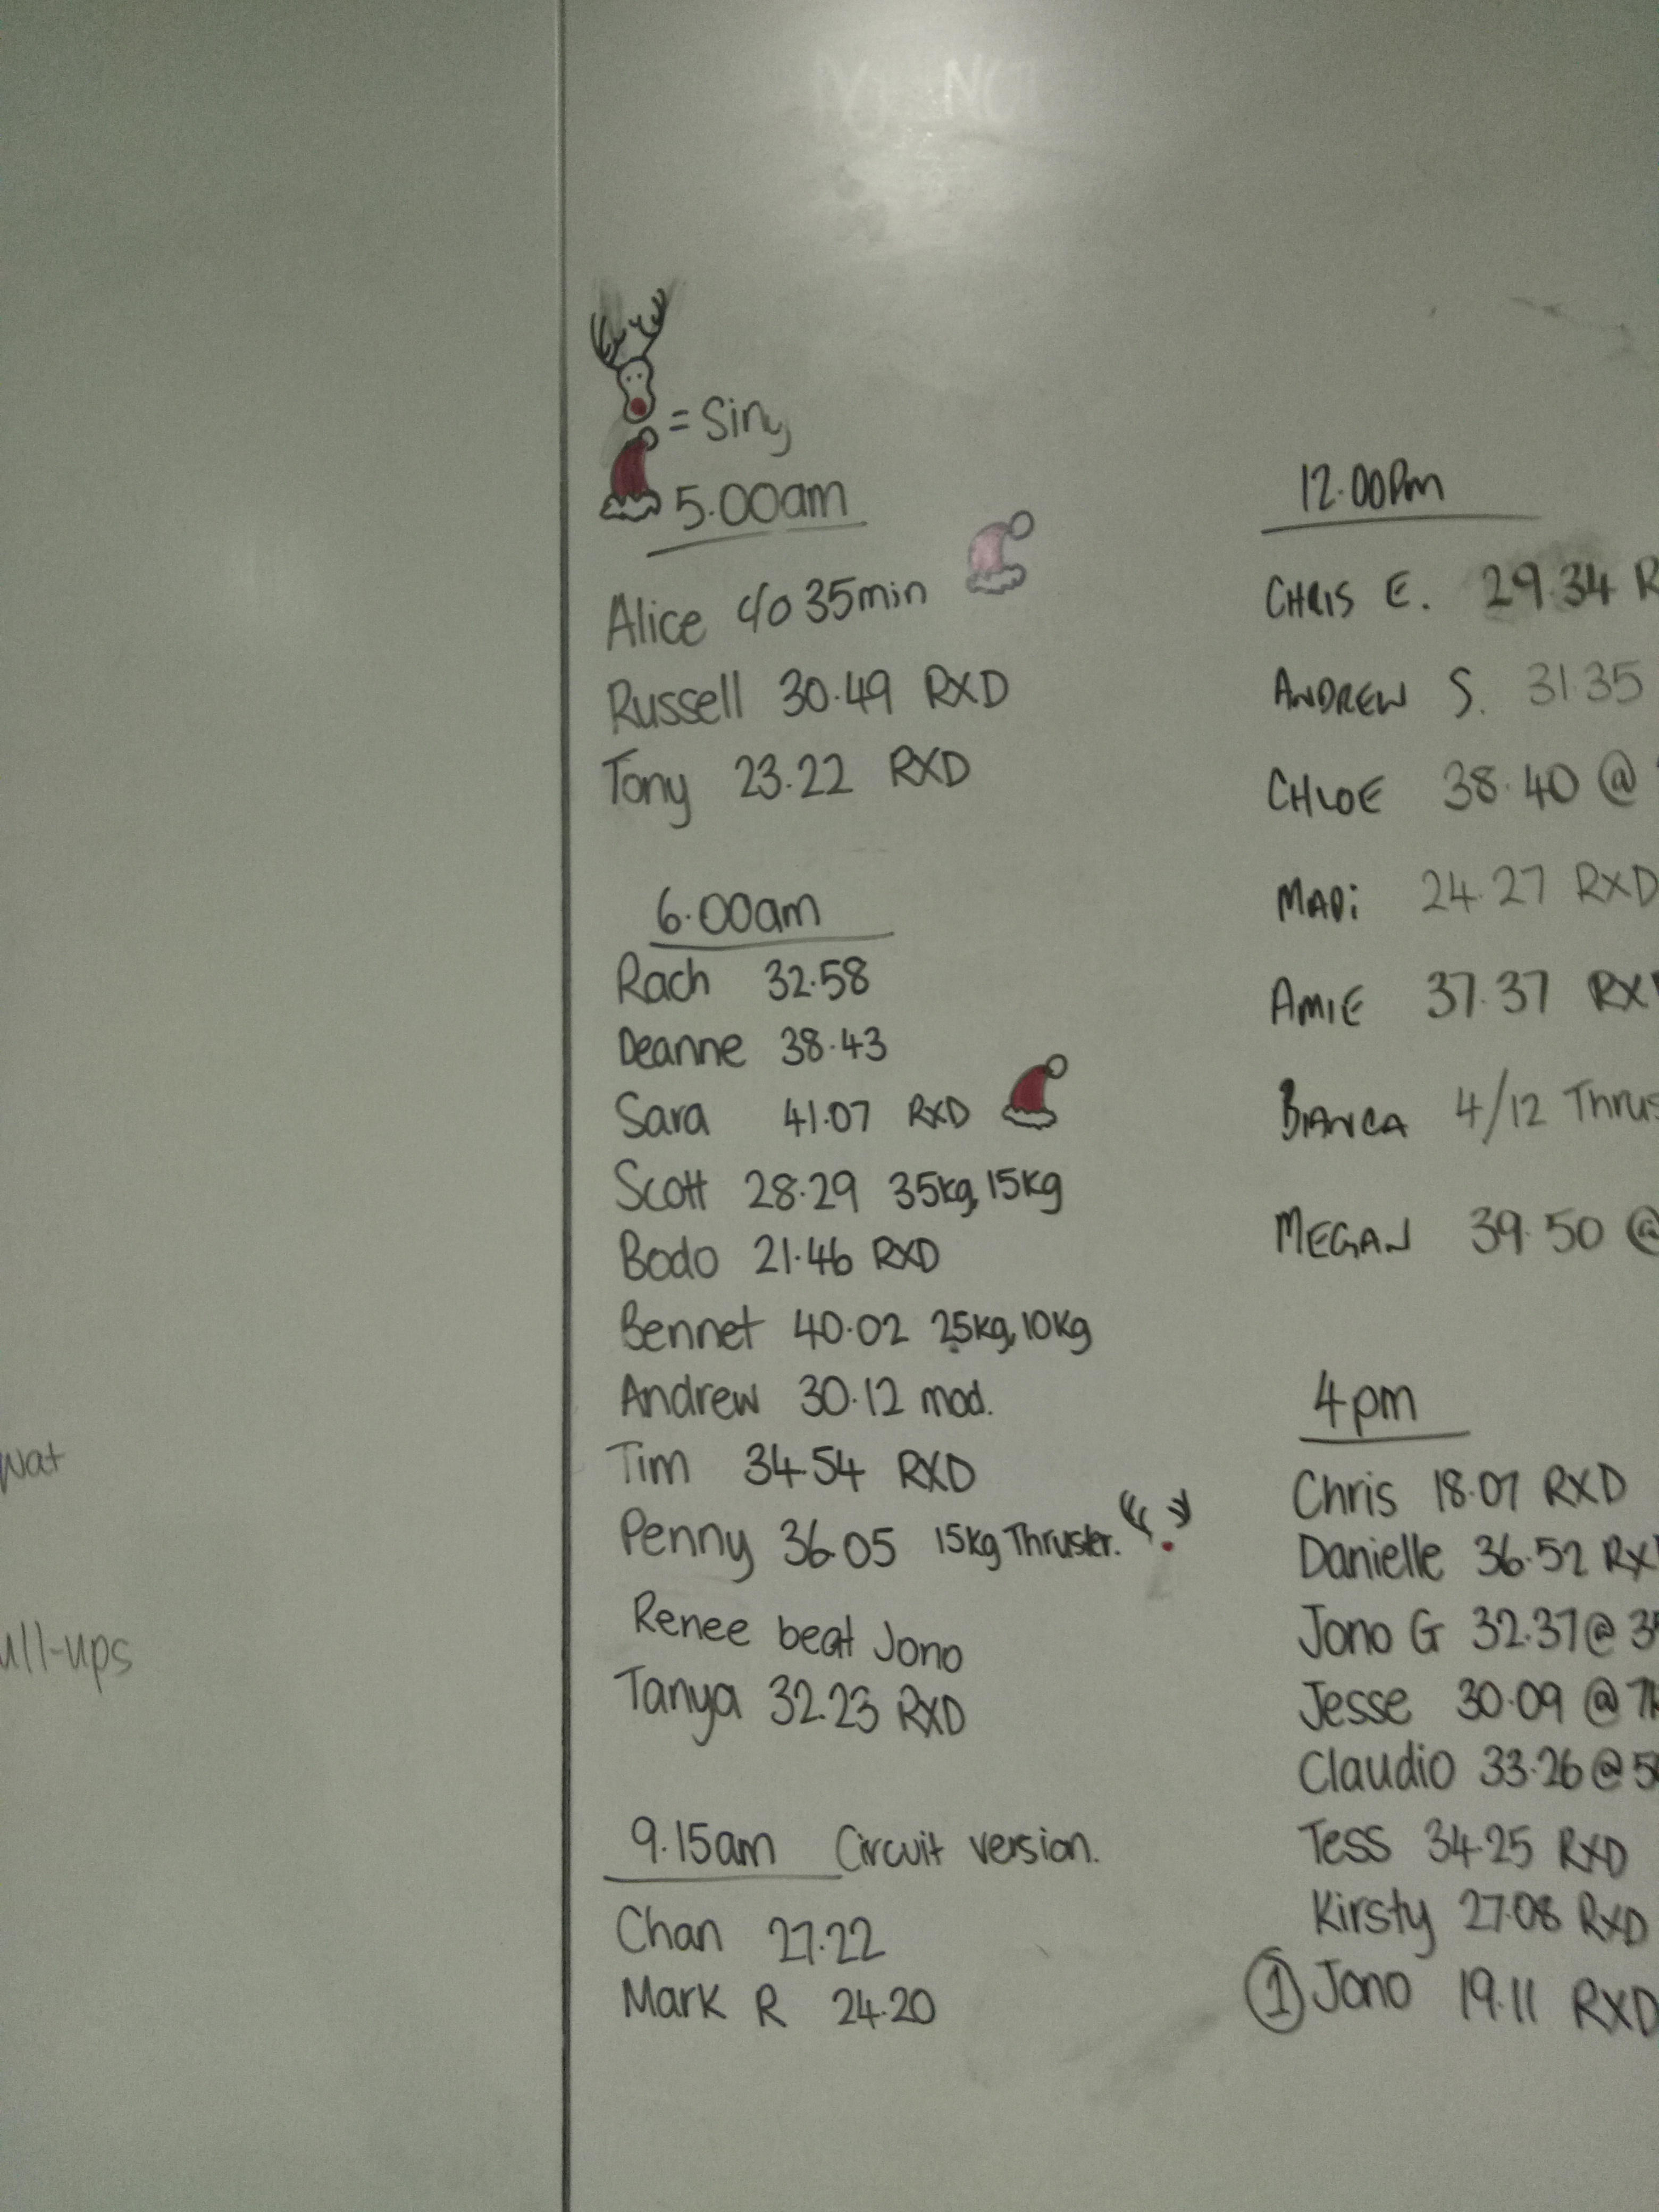 = Sing
5.00am
Alice c/o 35min
Russell 30.49 RXD
Tony 23.22 RXD
6.00am
Rach 32.58
Deanne 38.43
Sara 41.07 RXD
Scott 28.29 35kg, 15kg
Bodo 21.46 RXD
Bennet 40.02 25kg, 10kg
Andrew 30.12 mod.
Tim 34.54 RXD
Penny 36.05 15kg Thruster.
Renee beat Jono
Tanya 32.23 RXD
9.15am Circuit version.
Chan 27.22
Mark R 24.20
12.00Pm
CHRIS E. 29.34 R
ANDREW S. 31.35
CHLOE 38.40 @
MADi 24.27 RXD
AMIE 37.37 RX
BIANCA 4/12 Thrus
MEGAN 39.50 @
4pm
Chris 18.07 RXD
Danielle 36.52 RX
Jono G 32.37 @ 3
Jesse 30.09 @
Claudio 33.26 @ 5
Tess 34.25 RXD
Kirsty 27.08 RXD
① Jono 19.11 RXD
wat
ull-ups